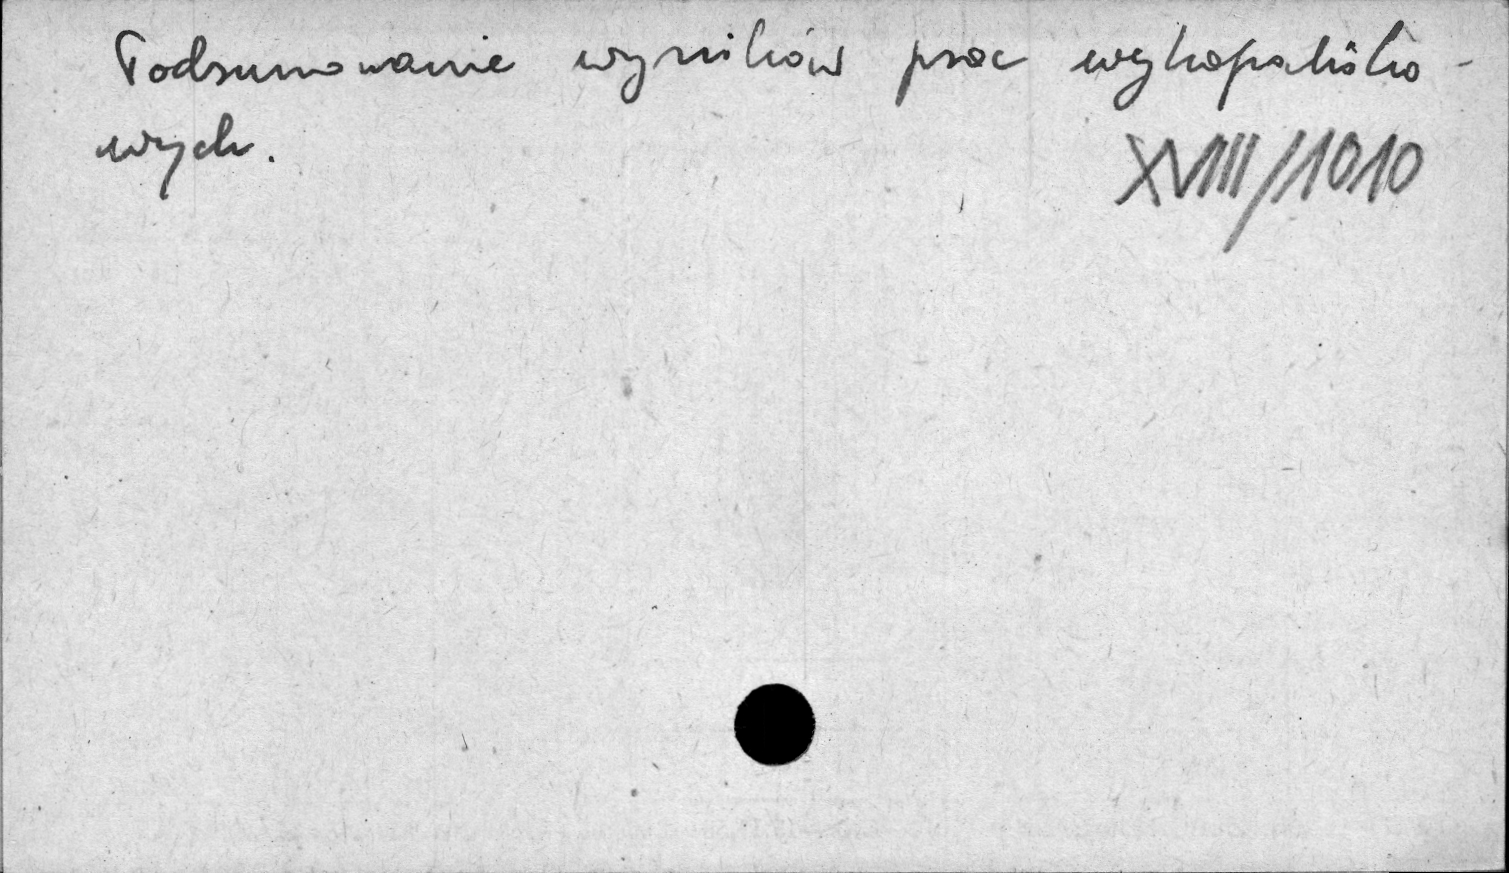 Podsumowanie wyników prac wykopalisko-
wych.
XVIII/1010